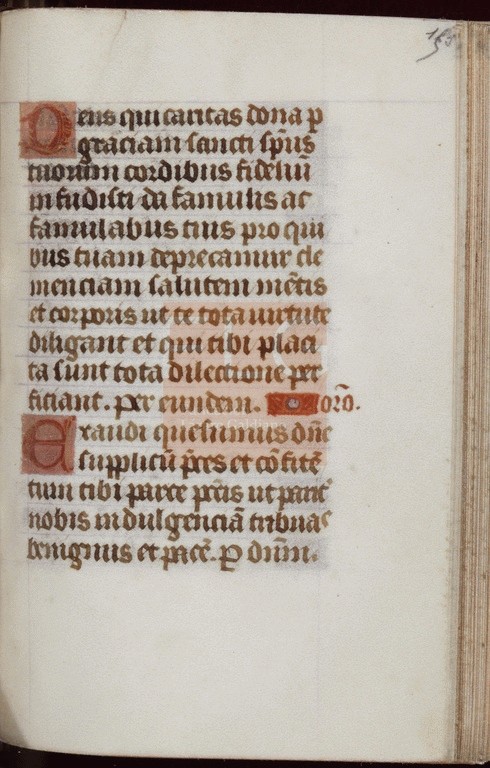 Deus qui caritas dona p
graciam sancti sp̄us
tuorum cordibus fideliū
infudisti da famulis ac
famulabus tuis pro qui
bus tuam deprecamur cle
menciam salutem mētis
et corporis ut te tota virtute
diligant et qui tibi placi
ta sunt tota dilectione per
ficiant. per eundem. orō.
Exaudi quesumus dn̄e
supplicū p̄ces et cōfitē
tum tibi parce pctīs ut parit᷑
nobis indulgenciā tribuas
benignus et pacē. P dn̄m.